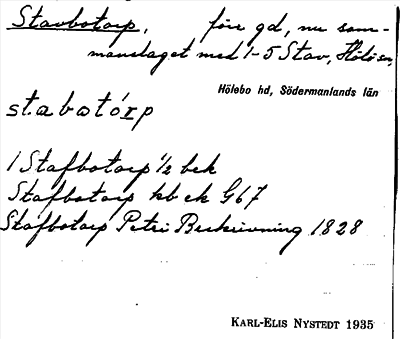 Stavbotorp, förr gd, nu sam-
manslaget med 1-5 Stav, Hölö sn,
Hölebo hd, Södermanlands län
stabotórp
1 Stafbotorp ½ bek
Stafbotorp kb ek G67
Stafbotorp Petri Beskrivning 1828
KARL-ELIS NYSTEDT 1935